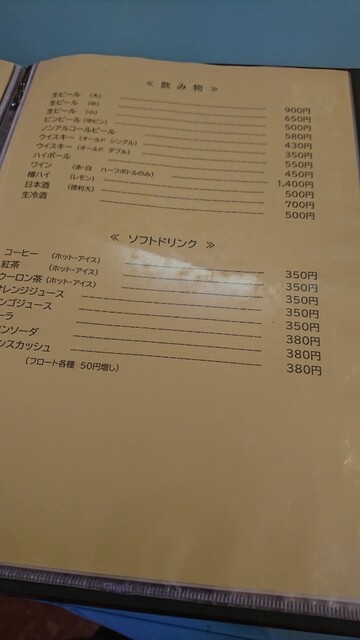 ≪ 飲 み 物 ≫
生ビール (大) 900円
生ビール (中) 650円
生ビール (小) 500円
ビンビール (中ビン) 580円
ノンアルコールビール 430円
ウイスキー (オールド シングル) 350円
ウイスキー (オールド ダブル) 550円
ハイボール 450円
ワイン (赤・白 ハーフボトルのみ) 1,400円
樽ハイ (レモン) 500円
日本酒 (徳和大) 700円
生冷酒 500円
≪ ソフトドリンク ≫
コーヒー (ホット・アイス) 350円
紅茶 (ホット・アイス) 350円
ウーロン茶 (ホット・アイス) 350円
オレンジジュース 350円
ンゴジュース 350円
ーラ 380円
ンソーダ 380円
ンスカッシュ 380円
(フロート各種 50円増し)